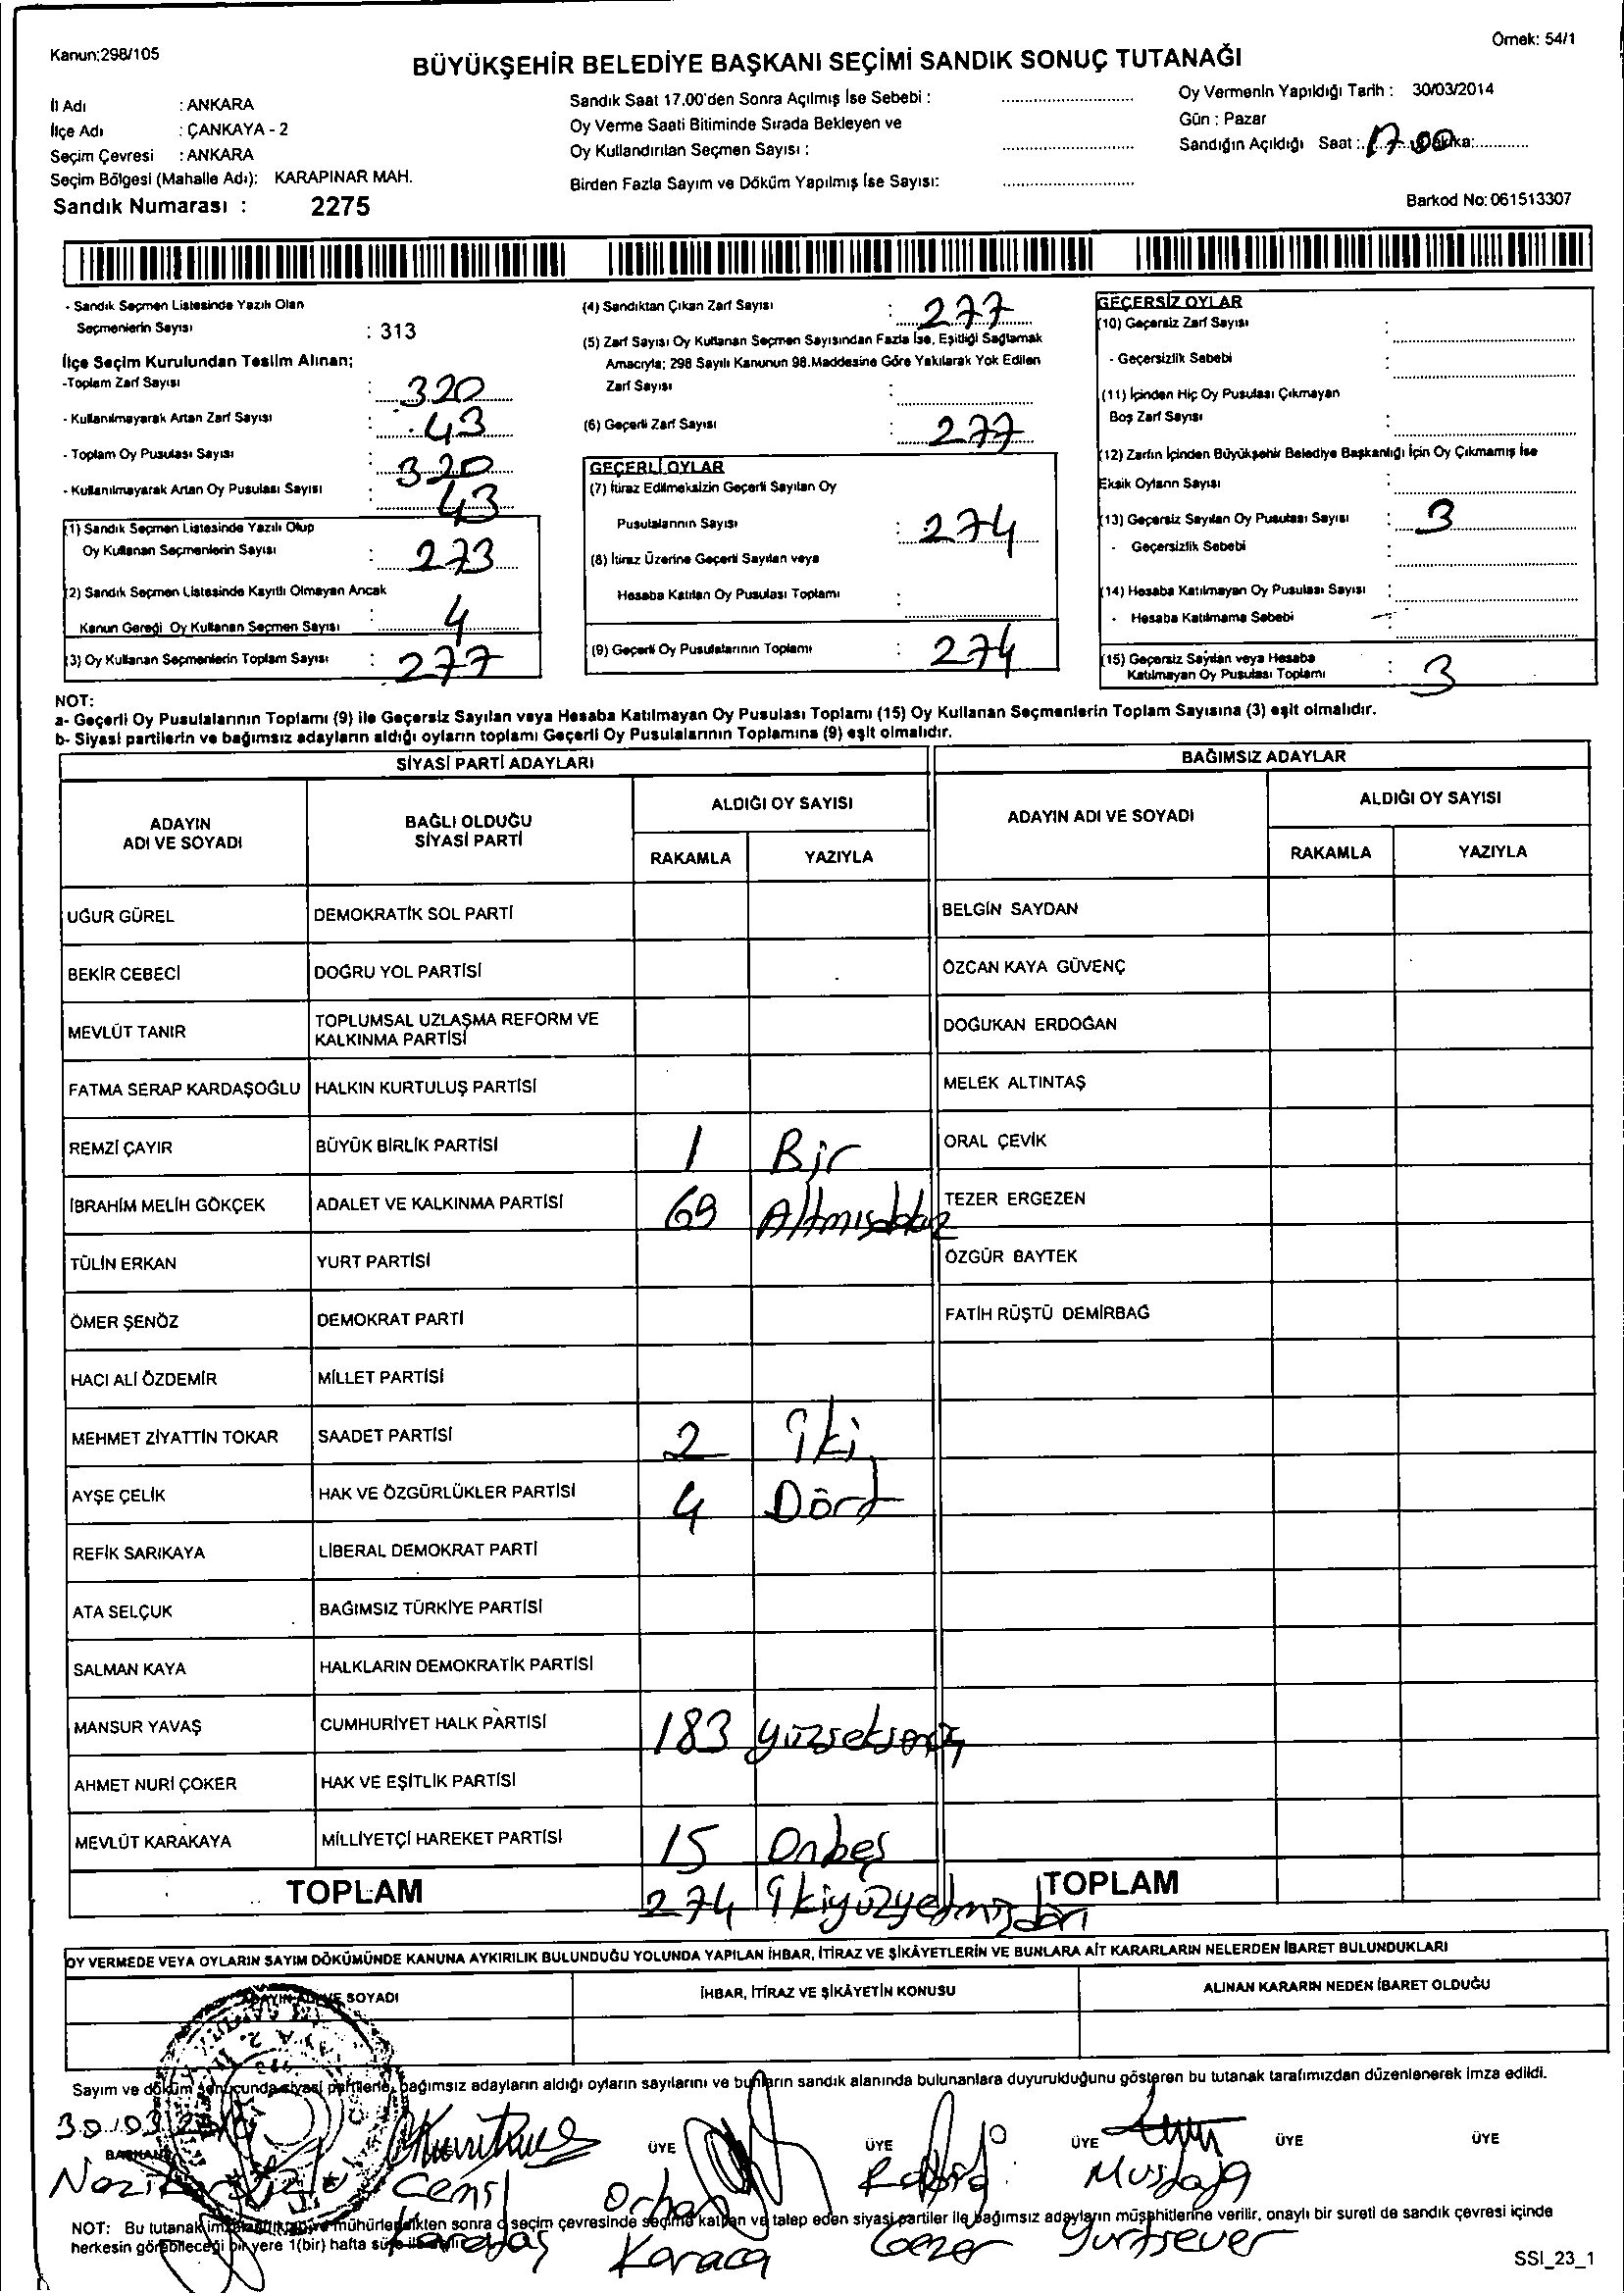 Kanun:298/105
Örnek: 54/1
BÜYÜKŞEHİR BELEDİYE BAŞKANI SEÇİMİ SANDIK SONUÇ TUTANAĞI
İl Adı : ANKARA
İlçe Adı : ÇANKAYA - 2
Seçim Çevresi : ANKARA
Seçim Bölgesi (Mahalle Adı): KARAPINAR MAH.
Sandık Numarası : 2275
Sandık Saat 17.00'den Sonra Açılmış İse Sebebi :
Oy Verme Saati Bitiminde Sırada Bekleyen ve
Oy Kullandırılan Seçmen Sayısı :
Birden Fazla Sayım ve Döküm Yapılmış İse Sayısı:
Oy Vermenin Yapıldığı Tarih : 30/03/2014
Gün : Pazar
Sandığın Açıldığı Saat : 17.00
Barkod No: 061513307
- Sandık Seçmen Listesinde Yazılı Olan
Seçmenlerin Sayısı : 313
İlçe Seçim Kurulundan Teslim Alınan;
-Toplam Zarf Sayısı : 320
- Kullanılmayarak Artan Zarf Sayısı : 43
- Toplam Oy Pusulası Sayısı : 320
- Kullanılmayarak Artan Oy Pusulası Sayısı : 43
(1) Sandık Seçmen Listesinde Yazılı Olup
Oy Kullanan Seçmenlerin Sayısı : 273
(2) Sandık Seçmen Listesinde Kayıtlı Olmayan Ancak
Kanun Gereği Oy Kullanan Seçmen Sayısı : 4
(3) Oy Kullanan Seçmenlerin Toplam Sayısı : 277
(4) Sandıktan Çıkan Zarf Sayısı : 277
(5) Zarf Sayısı Oy Kullanan Seçmen Sayısından Fazla İse, Eşitliği Sağlamak
Amacıyla; 298 Sayılı Kanunun 98.Maddesine Göre Yakılarak Yok Edilen
Zarf Sayısı :
(6) Geçerli Zarf Sayısı : 277
GEÇERLİ OYLAR
(7) İtiraz Edilmeksizin Geçerli Sayılan Oy
Pusulalarının Sayısı : 274
(8) İtiraz Üzerine Geçerli Sayılan veya
Hesaba Katılan Oy Pusulası Toplamı :
(9) Geçerli Oy Pusulalarının Toplamı : 274
GEÇERSİZ OYLAR
(10) Geçersiz Zarf Sayısı :
- Geçersizlik Sebebi :
(11) İçinden Hiç Oy Pusulası Çıkmayan
Boş Zarf Sayısı :
(12) Zarfın İçinden Büyükşehir Belediye Başkanlığı İçin Oy Çıkmamış İse
Eksik Oyların Sayısı :
(13) Geçersiz Sayılan Oy Pusulası Sayısı : 3
- Geçersizlik Sebebi :
(14) Hesaba Katılmayan Oy Pusulası Sayısı :
- Hesaba Katılmama Sebebi
(15) Geçersiz Sayılan veya Hesaba
Katılmayan Oy Pusulası Toplamı : 3
NOT:
a- Geçerli Oy Pusulalarının Toplamı (9) ile Geçersiz Sayılan veya Hesaba Katılmayan Oy Pusulası Toplamı (15) Oy Kullanan Seçmenlerin Toplam Sayısına (3) eşit olmalıdır.
b- Siyasi partilerin ve bağımsız adayların aldığı oyların toplamı Geçerli Oy Pusulalarının Toplamına (9) eşit olmalıdır.
SİYASİ PARTİ ADAYLARI
ADAYIN ADI VE SOYADI
BAĞLI OLDUĞU SİYASİ PARTİ
ALDIĞI OY SAYISI
RAKAMLA YAZIYLA
UĞUR GÜREL DEMOKRATİK SOL PARTİ
BEKİR CEBECİ DOĞRU YOL PARTİSİ
MEVLÜT TANIR TOPLUMSAL UZLAŞMA REFORM VE KALKINMA PARTİSİ
FATMA SERAP KARDAŞOĞLU HALKIN KURTULUŞ PARTİSİ
REMZİ ÇAYIR BÜYÜK BİRLİK PARTİSİ 1 Bir
İBRAHİM MELİH GÖKÇEK ADALET VE KALKINMA PARTİSİ 69 Altmışdokuz
TÜLİN ERKAN YURT PARTİSİ
ÖMER ŞENÖZ DEMOKRAT PARTİ
HACI ALİ ÖZDEMİR MİLLET PARTİSİ
MEHMET ZİYATTİN TOKAR SAADET PARTİSİ 2 İki
AYŞE ÇELİK HAK VE ÖZGÜRLÜKLER PARTİSİ 4 Dört
REFİK SARIKAYA LİBERAL DEMOKRAT PARTİ
ATA SELÇUK BAĞIMSIZ TÜRKİYE PARTİSİ
SALMAN KAYA HALKLARIN DEMOKRATİK PARTİSİ
MANSUR YAVAŞ CUMHURİYET HALK PARTİSİ 183 yüzseksenüç
AHMET NURİ ÇOKER HAK VE EŞİTLİK PARTİSİ
MEVLÜT KARAKAYA MİLLİYETÇİ HAREKET PARTİSİ 15 Onbeş
TOPLAM 274 İkiyüzyetmişdört
BAĞIMSIZ ADAYLAR
ADAYIN ADI VE SOYADI
ALDIĞI OY SAYISI
RAKAMLA YAZIYLA
BELGİN SAYDAN
ÖZCAN KAYA GÜVENÇ
DOĞUKAN ERDOĞAN
MELEK ALTINTAŞ
ORAL ÇEVİK
TEZER ERGEZEN
ÖZGÜR BAYTEK
FATİH RÜŞTÜ DEMİRBAĞ
TOPLAM
OY VERMEDE VEYA OYLARIN SAYIM DÖKÜMÜNDE KANUNA AYKIRILIK BULUNDUĞU YOLUNDA YAPILAN İHBAR, İTİRAZ VE ŞİKÂYETLERİN VE BUNLARA AİT KARARLARIN NELERDEN İBARET BULUNDUKLARI
SOYADI
İHBAR, İTİRAZ VE ŞİKÂYETİN KONUSU
ALINAN KARARIN NEDEN İBARET OLDUĞU
Sayım ve döküm sonucunda siyasi partilerle, bağımsız adayların aldığı oyların sayılarını ve bunların sandık alanında bulunanlara duyurulduğunu gösteren bu tutanak tarafımızdan düzenlenerek imza edildi.
30/03/
BAŞKAN ÜYE ÜYE ÜYE ÜYE ÜYE
Cemil Orhan Mustafa
Karataş Karaca Gezer Yurtsever
NOT: Bu tutanak mühürlendikten sonra o seçim çevresinde seçime katılan ve talep eden siyasi partiler ile bağımsız adayların müşahitlerine verilir, onaylı bir sureti de sandık çevresi içinde
herkesin görebileceği bir yere 1(bir) hafta süre
SSI_23_1